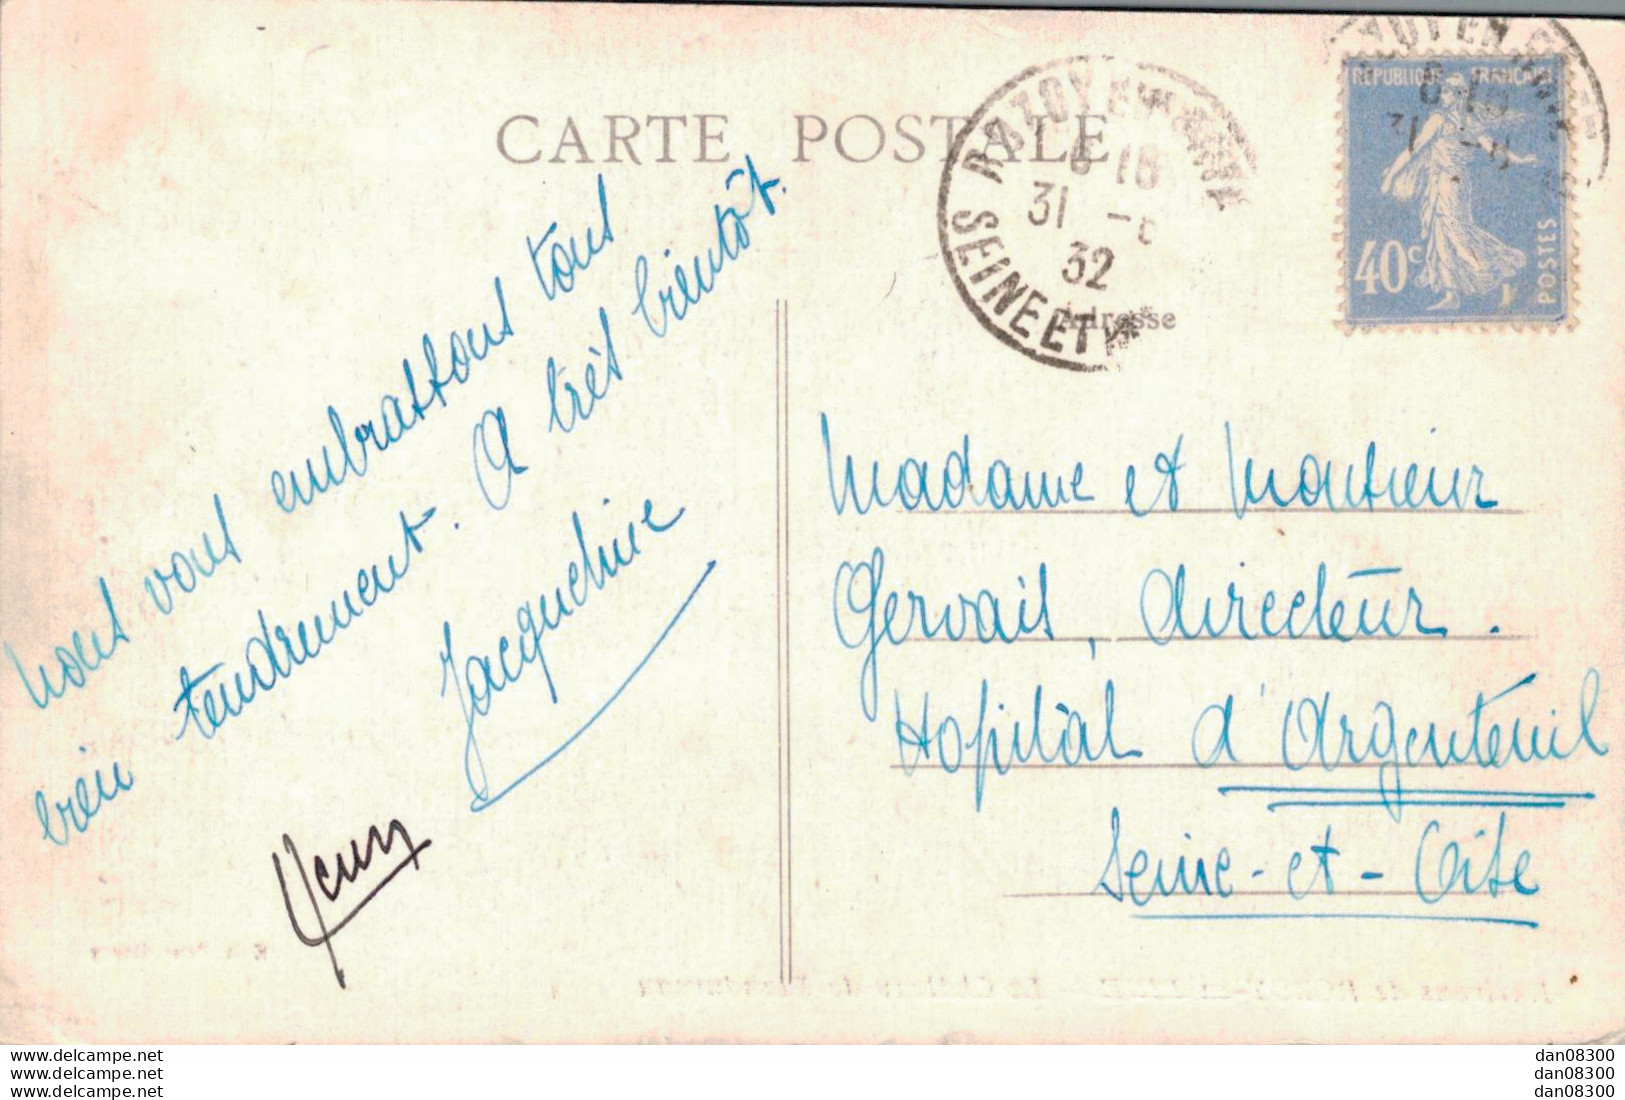 CARTE POSTALE
ROZOY EN BRIE
31 - 8
32
SEINE ET Mne
REPUBLIQUE FRANCAISE
40c
POSTES
Adresse
Nous vous embrassons tous
bien tendrement. A très bientôt.
Jacqueline
Henry
Madame et Monsieur
Gervais, directeur.
Hopital d'Argenteuil
Seine-et-Oise
www.delcampe.net
www.delcampe.net
www.delcampe.net
dan08300
dan08300
dan08300